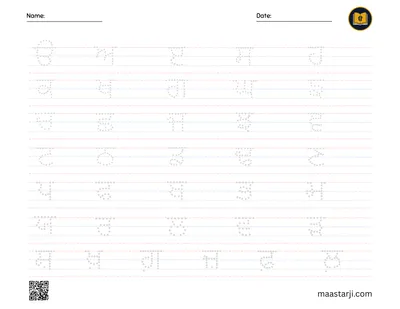 Name:
Date:
ੳ ਅ ੲ ਸ ਹ
ਕ ਖ ਗ ਘ ਙ
ਚ ਛ ਜ ਝ ਞ
ਟ ਠ ਡ ਢ ਣ
ਪ ਫ ਬ ਭ ਮ
ਯ ਰ ਲ ਵ ੜ
ਸ਼ ਖ਼ ਗ਼ ਜ਼ ਫ਼ ਲ਼
maastarji.com